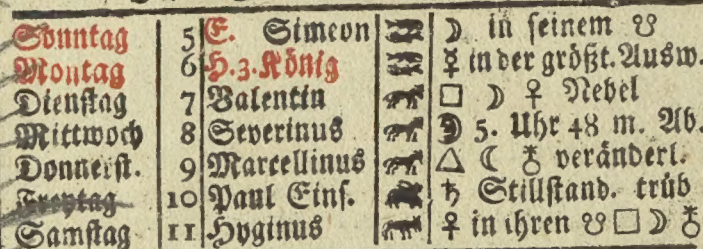 Sonntag 5 E. Simeon ☽ in seinem ☋
Montag 6 H. 3. König ☿ in der größt. Ausw.
Dienstag 7 Valentin □ ☽ ♀ Nebel
Mittwoch 8 Severinus 5. Uhr 48 m. Ab.
Donnerst. 9 Marcellinus △ ☾ ♁ veränderl.
Freytag 10 Paul Eins. ♄ Stillstand. trüb
Samstag 11 Hyginus ♀ in ihren ☋ □ ☽ ♁